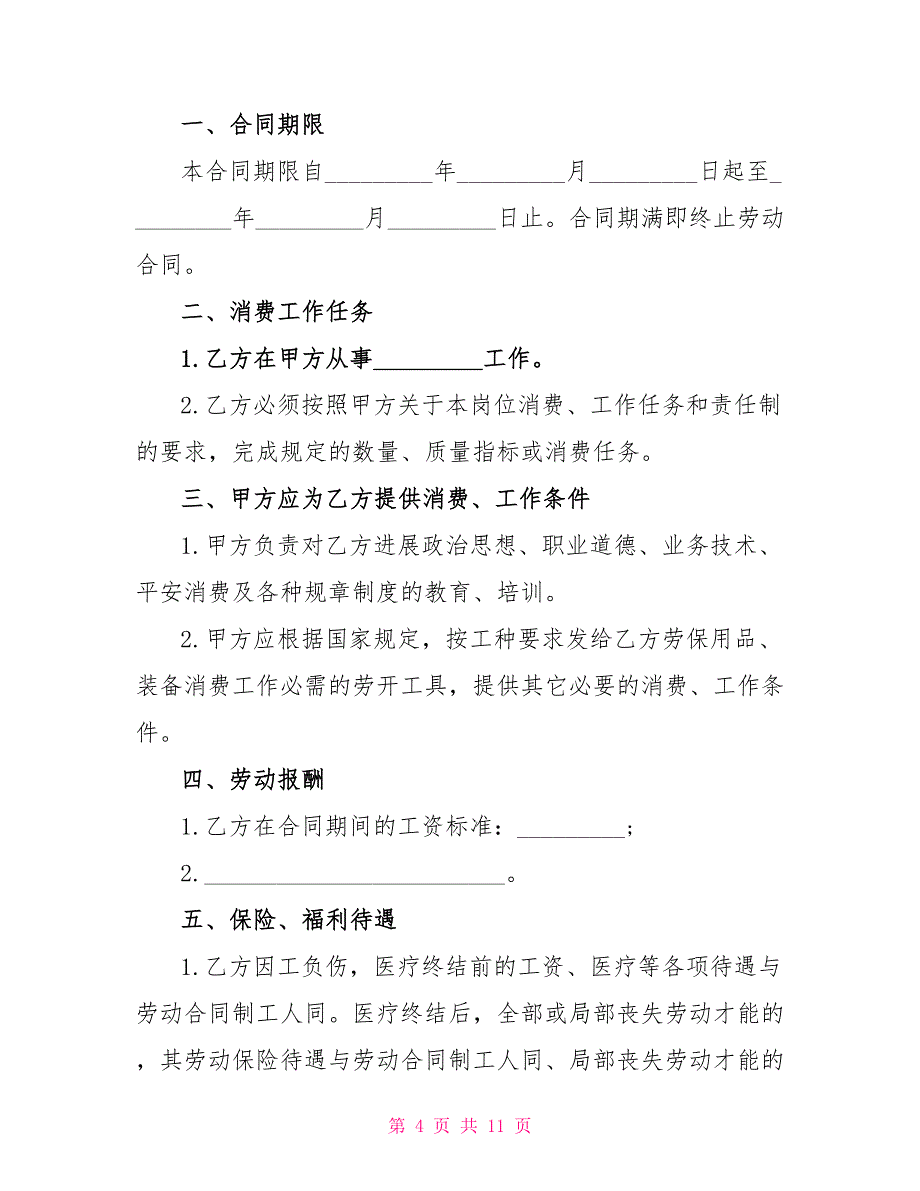 一、合同期限
本合同期限自_________年_________月_________日起至_
________年_________月_________日止。合同期满即终止劳动
合同。
二、消费工作任务
1.乙方在甲方从事_________工作。
2.乙方必须按照甲方关于本岗位消费、工作任务和责任制
的要求，完成规定的数量、质量指标或消费任务。
三、甲方应为乙方提供消费、工作条件
1.甲方负责对乙方进展政治思想、职业道德、业务技术、
平安消费及各种规章制度的教育、培训。
2.甲方应根据国家规定，按工种要求发给乙方劳保用品、
装备消费工作必需的劳开工具，提供其它必要的消费、工作条
件。
四、劳动报酬
1.乙方在合同期间的工资标准：_________；
2._________________________。
五、保险、福利待遇
1.乙方因工负伤，医疗终结前的工资、医疗等各项待遇与
劳动合同制工人同。医疗终结后，全部或局部丧失劳动才能的
，其劳动保险待遇与劳动合同制工人同、局部丧失劳动才能的
第 4 页 共 11 页